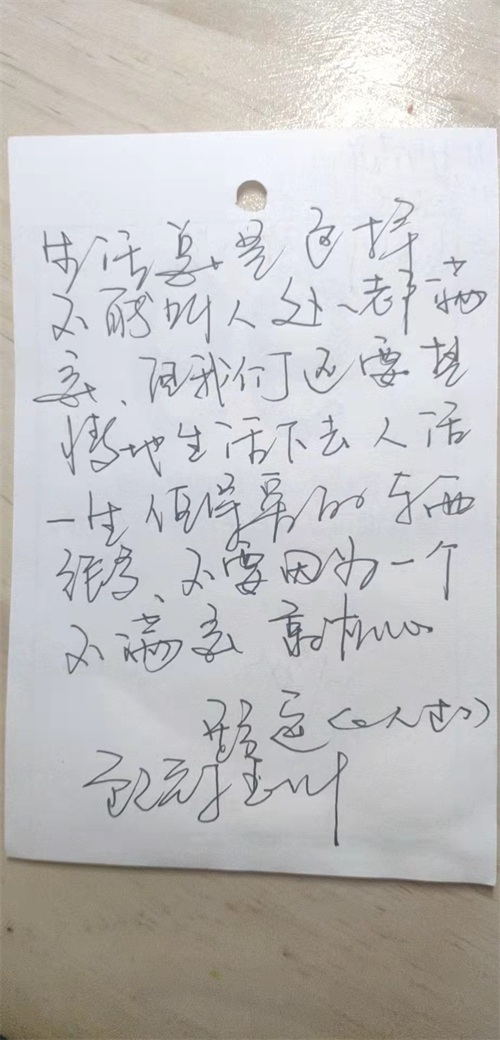 生活总是这样
不能叫人处处都满
意、但我们还要热
情地生活下去人活
一生值得爱的东西
很多、不要因为一个
不满意就灰心
路遥《人生》